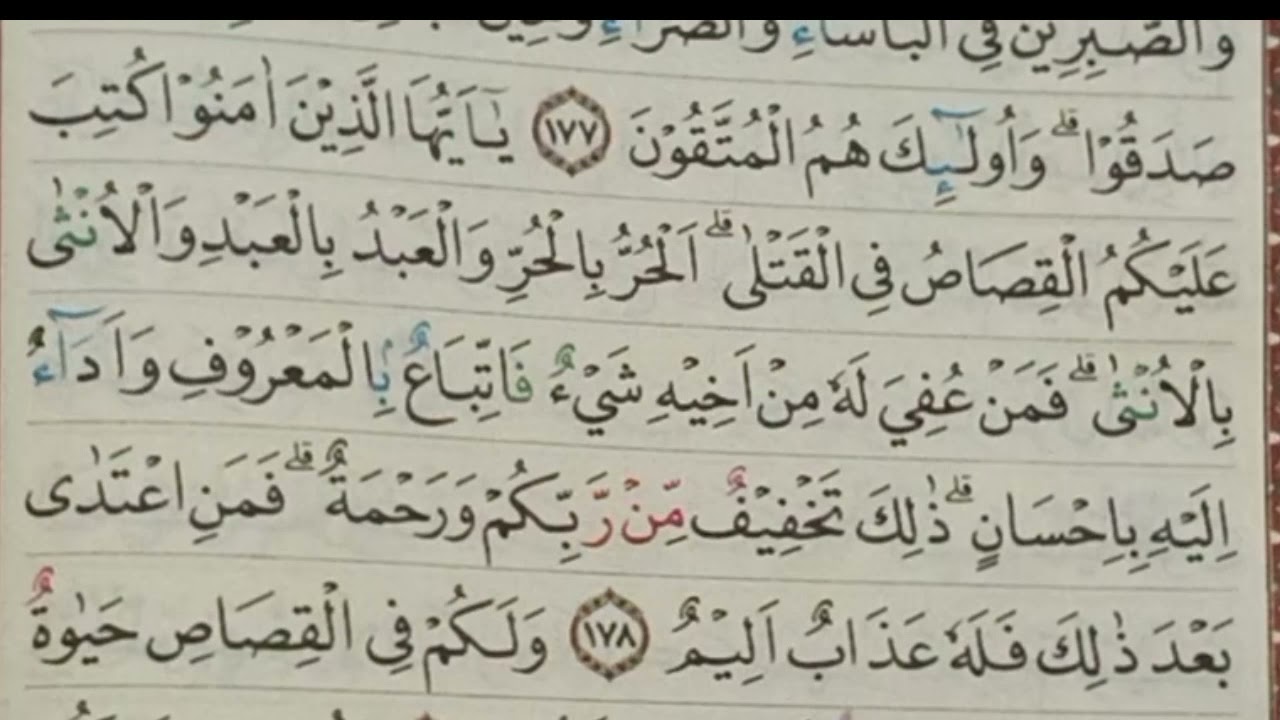 وَالصّٰبِرِيْنَ فِى الْبَأْسَاۤءِ وَالضَّرَّاۤءِ وَحِيْنَ
صَدَقُوْاۗ وَاُولٰۤىِٕكَ هُمُ الْمُتَّقُوْنَ ١٧٧ يٰٓاَيُّهَا الَّذِيْنَ اٰمَنُوْا كُتِبَ
عَلَيْكُمُ الْقِصَاصُ فِى الْقَتْلٰىۗ اَلْحُرُّ بِالْحُرِّ وَالْعَبْدُ بِالْعَبْدِ وَالْاُنْثٰى
بِالْاُنْثٰىۗ فَمَنْ عُفِيَ لَهٗ مِنْ اَخِيْهِ شَيْءٌ فَاتِّبَاعٌۢ بِالْمَعْرُوْفِ وَاَدَاۤءٌ
اِلَيْهِ بِاِحْسَانٍۗ ذٰلِكَ تَخْفِيْفٌ مِّنْ رَّبِّكُمْ وَرَحْمَةٌۗ فَمَنِ اعْتَدٰى
بَعْدَ ذٰلِكَ فَلَهٗ عَذَابٌ اَلِيْمٌ ١٧٨ وَلَكُمْ فِى الْقِصَاصِ حَيٰوةٌ